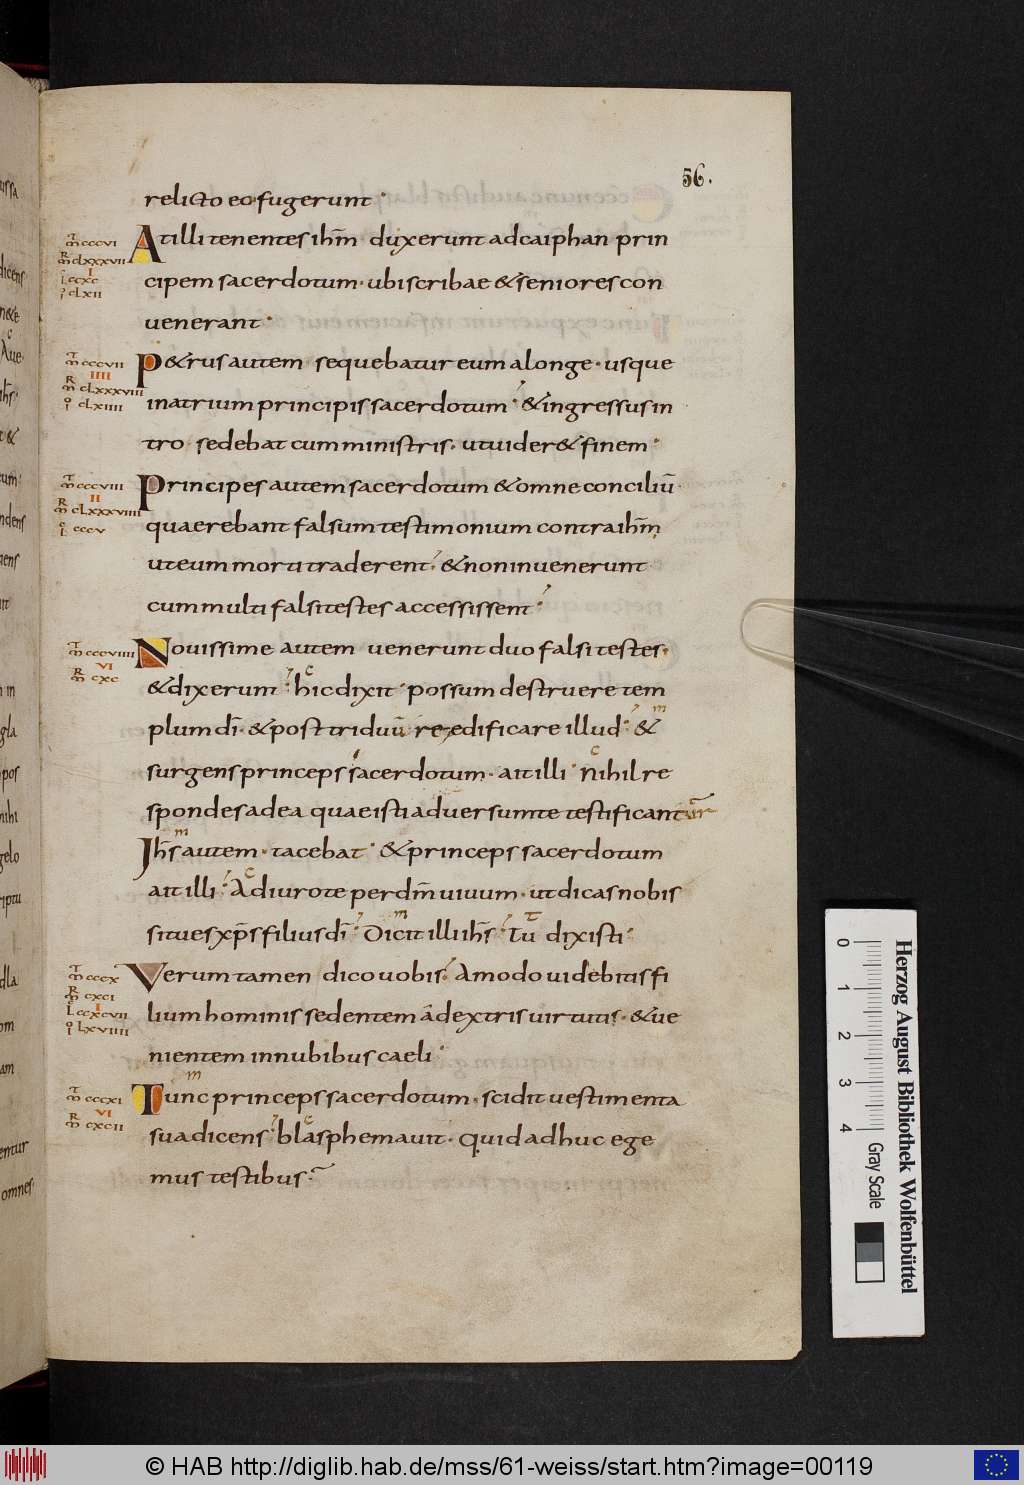 56.
relicto eo fugerunt
At illi tenentes ihm̅ duxerunt ad caiphan prin
cipem sacerdotum · ubi scribae & seniores con
venerant ·
P&rus autem sequebatur eum a longe · usque
in atrium principis sacerdotum · & ingressus in
tro sedebat cum ministris · ut uider& finem ·
Principes autem sacerdotum & omne conciliu̅
quaerebant falsum testimonium contra ihm̅
ut eum morti traderent · & non inuenerunt
cum multi falsi testes accessissent
Nouissime autem uenerunt duo falsi testes ·
& dixerunt hic dixit · possum destruere tem
plum di̅ · & post triduu̅ reedificare illud · &
surgens princeps sacerdotum · ait illi · nihil re
spondes ad ea quae isti aduersum te testificantur
Ihs̅ autem · tacebat · & princeps sacerdotum
ait illi · Adiuro te per dm̅ uiuum · ut dicas nobis
si tu es xp̅s filius di̅ · Dicit illi ihs̅ · Tu dixisti ·
Verum tamen dico uobis · Amodo uidebitis fi
lium hominis sedentem a dextris uirtutis · & ue
nientem in nubibus caeli ·
Tunc princeps sacerdotum · scidit uestimenta
sua dicens · blasphemauit · quid adhuc ege
mus testibus ·
m̅ cccvi
m̅ clxxxvii
I
L ccxc
clxii
m̅ cccvii
IIII
m̅ clxxxviii
clxiiii
m̅ cccviii
II
m̅ clxxxviiii
L cccv
m̅ cccviiii
VI
m̅ cxc
m̅ cccx
m̅ cxci
I
L ccxcvii
lxviiii
m̅ cccxi
VI
m̅ cxcii
0
1
2
3
4
Gray Scale
Herzog August Bibliothek Wolfenbüttel
© HAB http://diglib.hab.de/mss/61-weiss/start.htm?image=00119